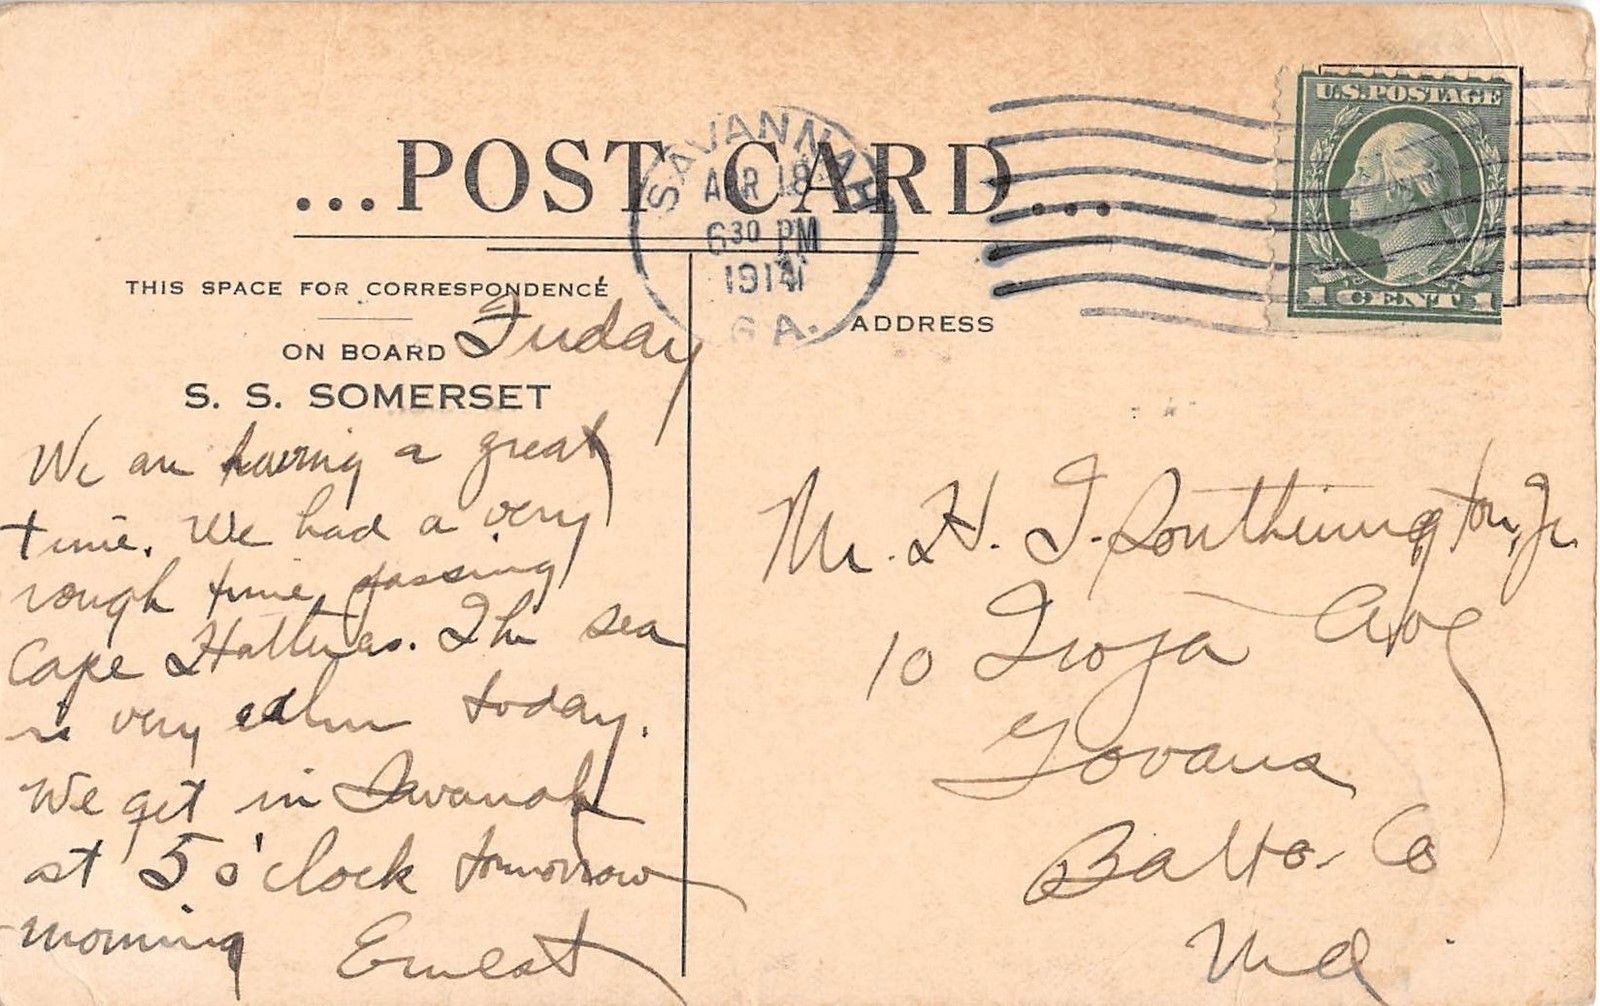 U.S. POSTAGE
1 CENT 1
SAVANNAH
APR 18
6 30 PM
1914
GA.
...POST CARD...
THIS SPACE FOR CORRESPONDENCE
ADDRESS
ON BOARD
S. S. SOMERSET
Friday
We are having a great
time. We had a very
rough time passing
Cape Hatteras. The sea
is very calm today.
We get in Savanah
at 5 o'clock tomorrow
morning
Ernest
Mr. H. I. Southington, Jr.
10 Ave
Govans
Balto. Co
Md.